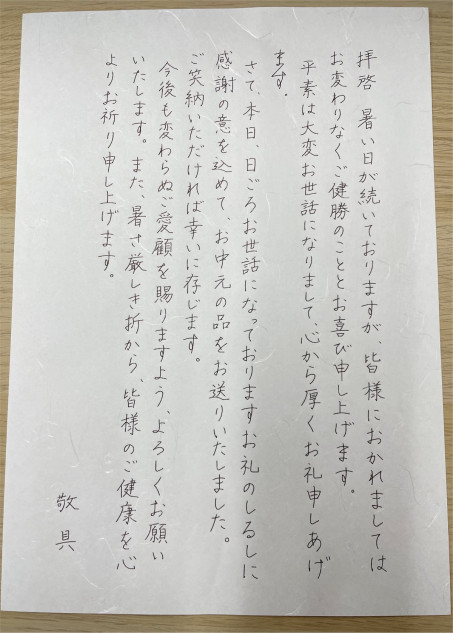 拝啓　暑い日が続いておりますが、皆様におかれましては
お変わりなくご健勝のこととお喜び申し上げます。
平素は大変お世話になりまして、心から厚くお礼申しあげ
ます。
さて、本日、日ごろお世話になっておりますお礼のしるしに
感謝の意を込めて、お中元の品をお送りいたしました。
ご笑納いただければ幸いに存じます。
今後も変わらぬご愛顧を賜りますよう、よろしくお願い
いたします。また、暑さ厳しき折から、皆様のご健康を心
よりお祈り申し上げます。
敬具